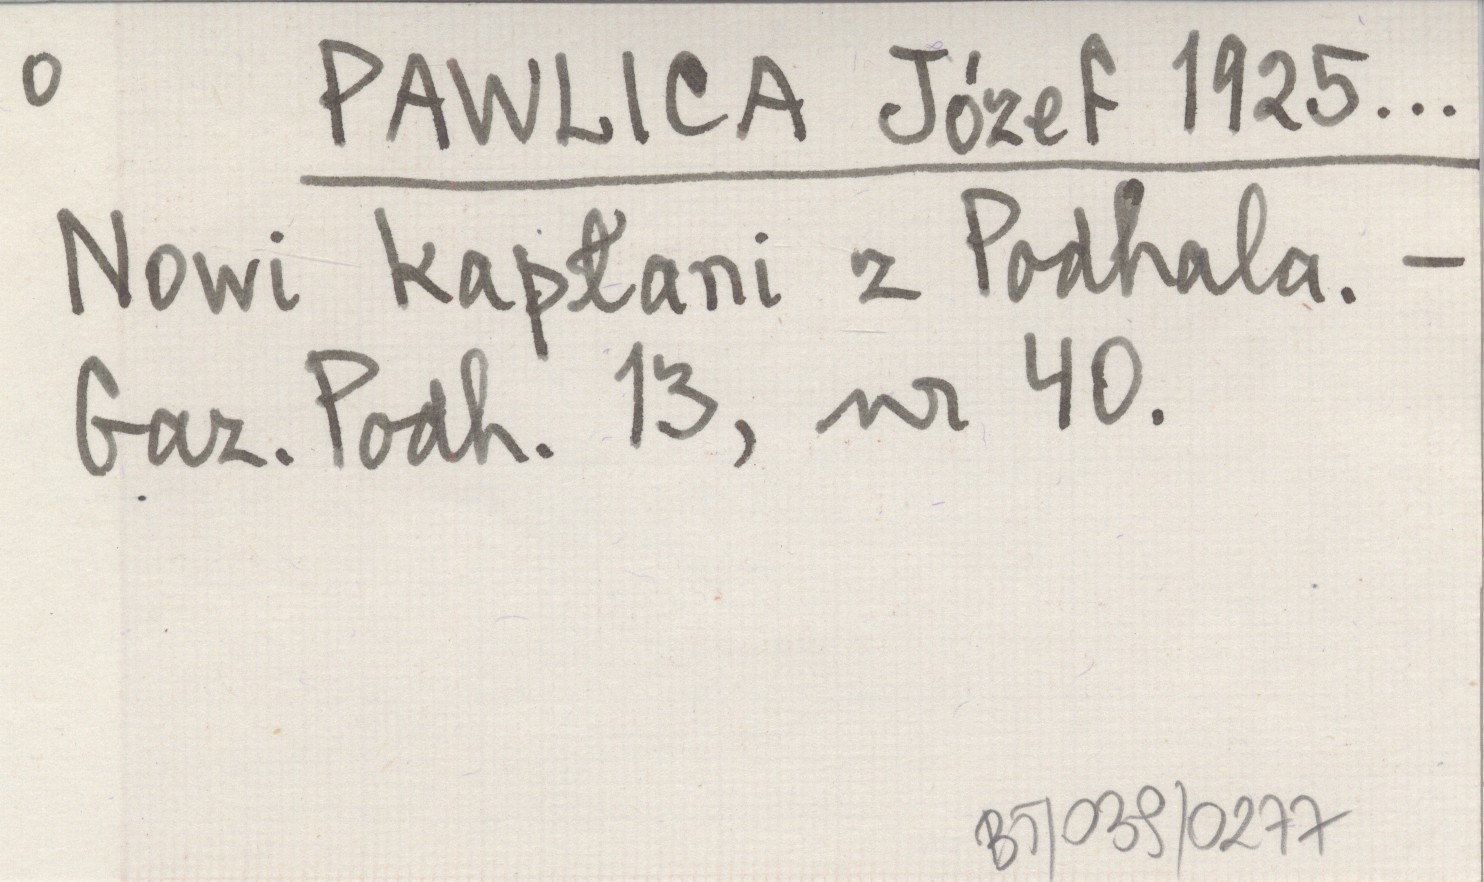 o PAWLICA Józef 1925...
Nowi kapłani z Podhala. –
Gaz. Podh. 13, nr 40.
BT/039/0277